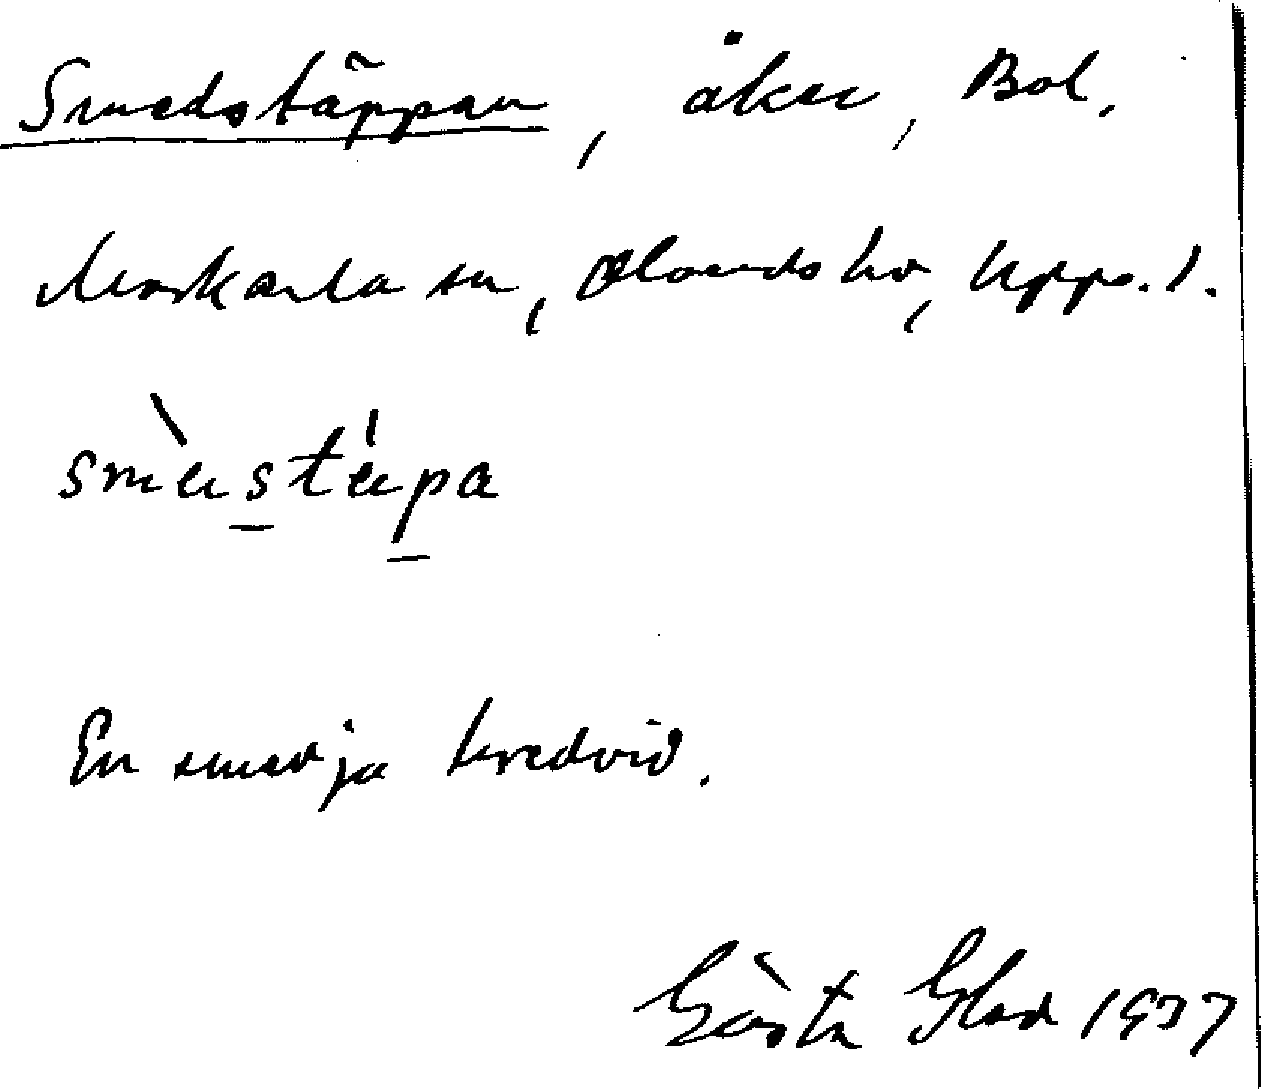 Smedstäppan, åker, Bol,
Morkarla sn, Olands hd, Upps. l.
smèستépa
En smedja bredvid.
Gösta Glad 1937